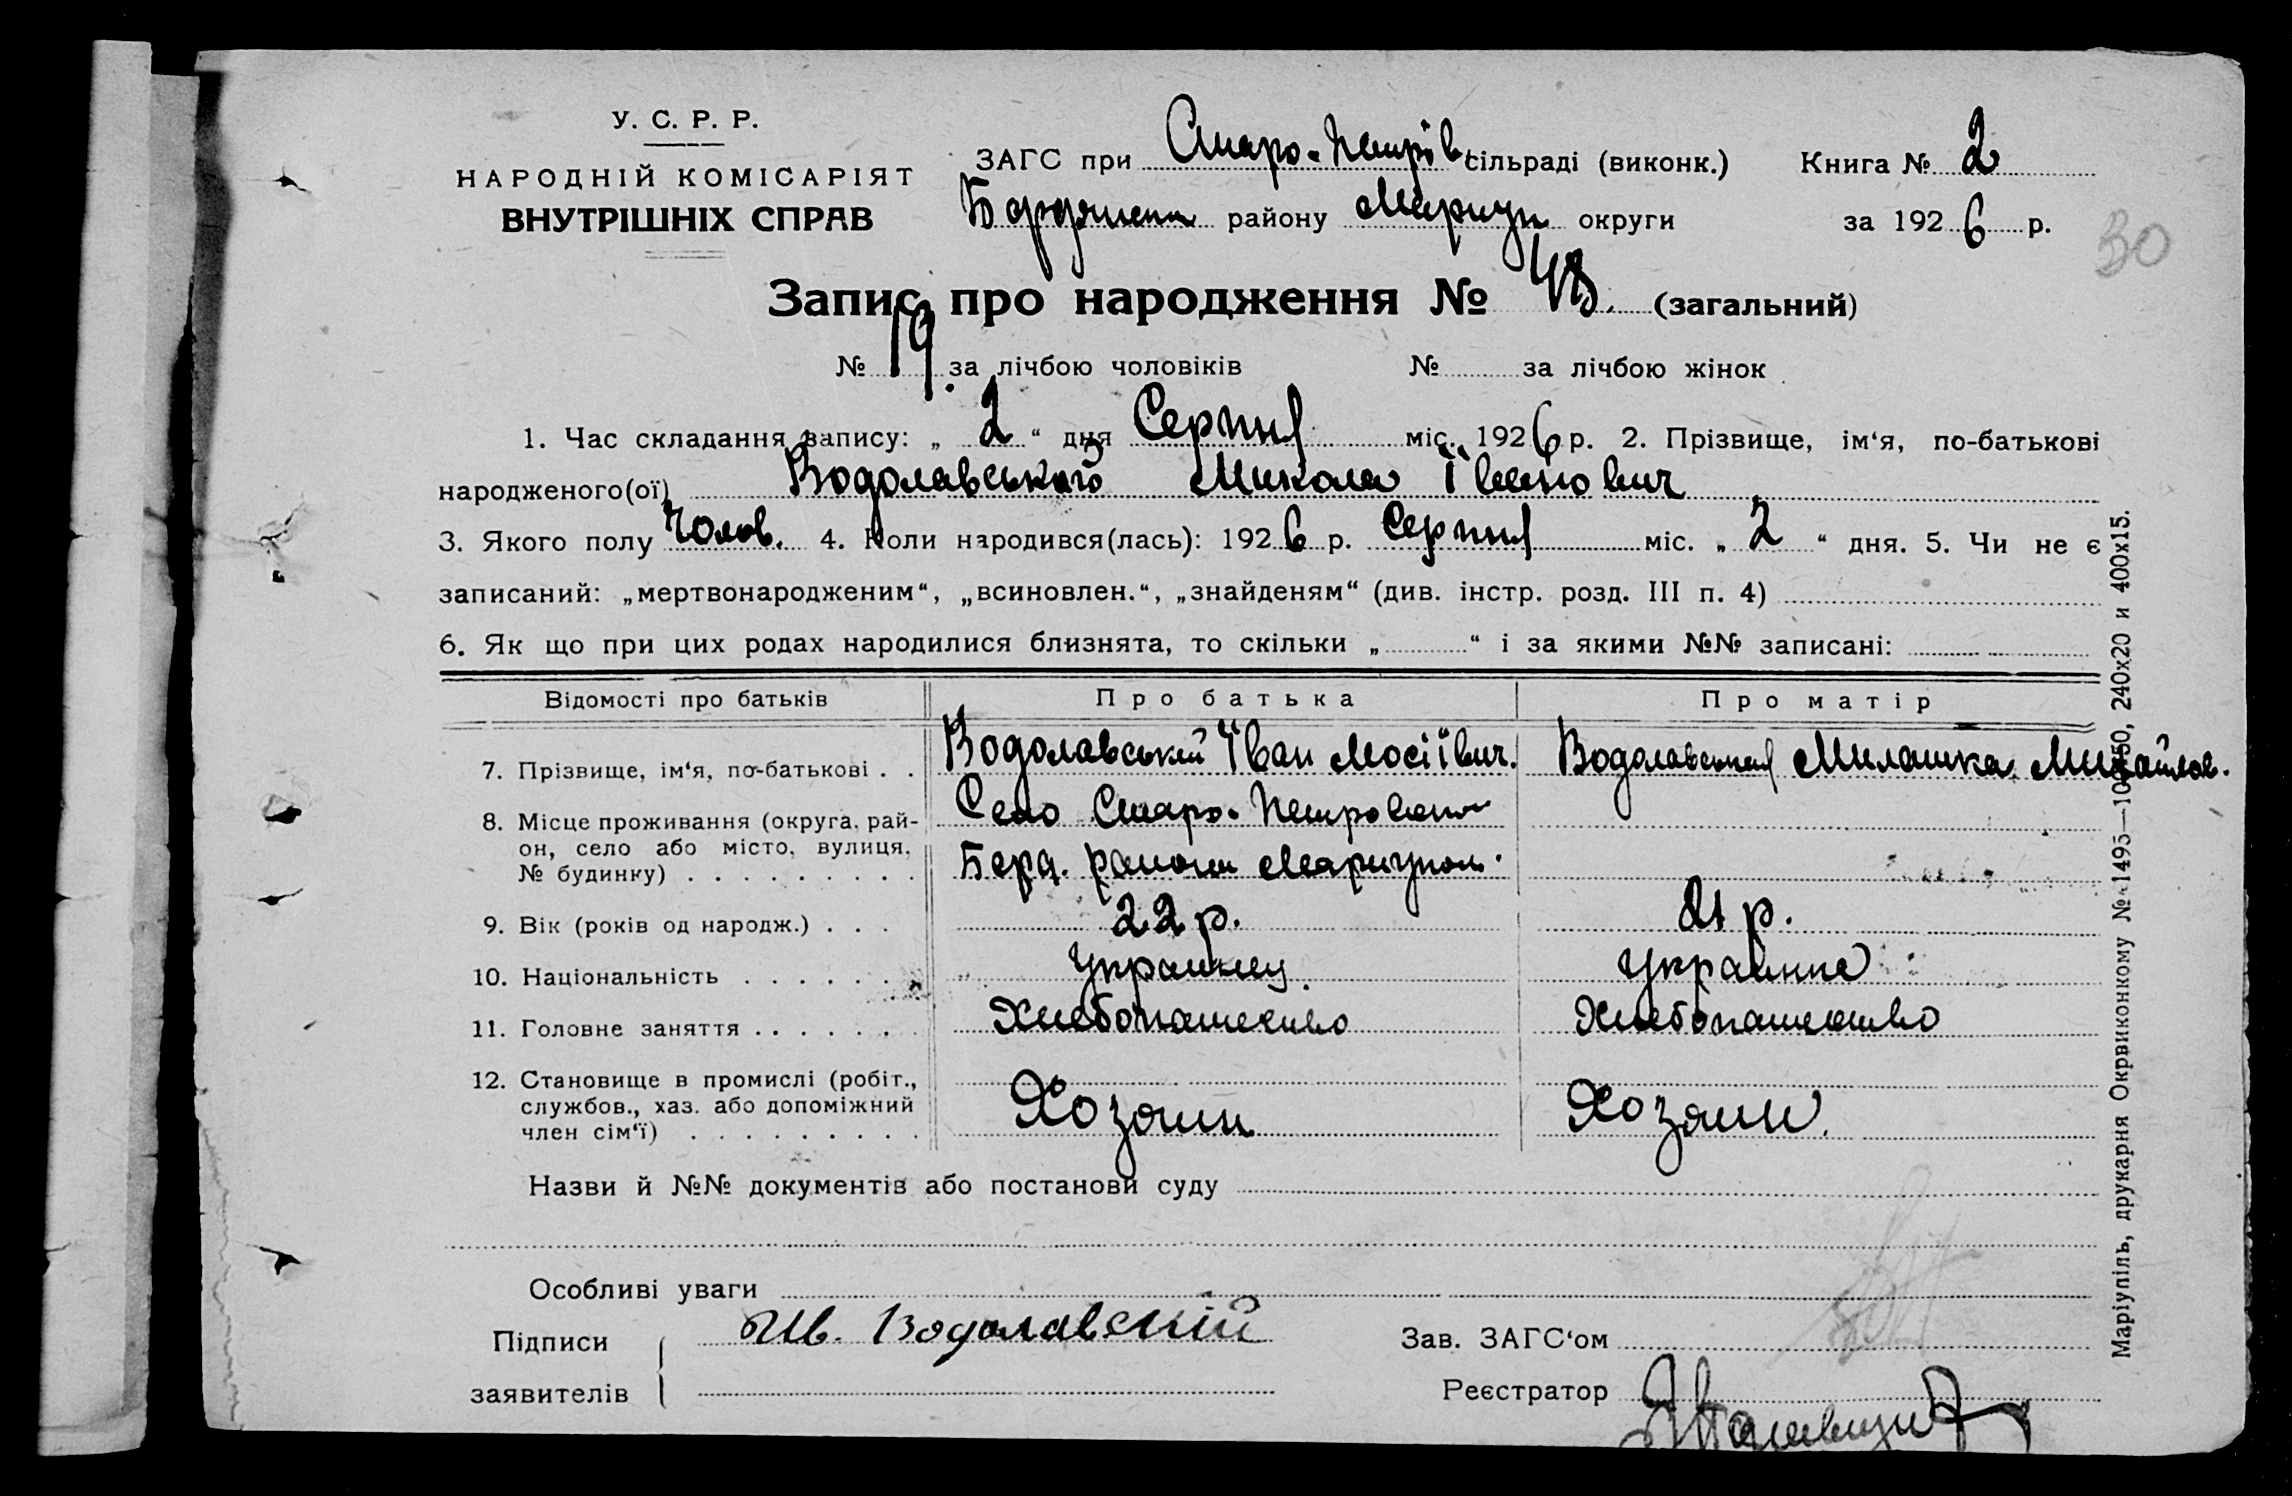 У. С. Р. Р.
НАРОДНІЙ КОМІСАРІЯТ
ВНУТРІШНІХ СПРАВ
ЗАГС при Старо-Петрів. сільраді (виконк.) Книга № 2
району Мариуп округи за 1926 р.
30
Запис про народження № 48. (загальний)
№ 19. за лічбою чоловіків № за лічбою жінок
1. Час складання запису: „ 2 “ дня Серпня міс. 1926 р. 2. Прізвище, ім‘я, по-батькові
народженого(ої) Водолавського Микола Іванович
3. Якого полу Чолов. 4. Коли народився(лась): 1926 р. Серпня міс. „ 2 “ дня. 5. Чи не є
записаний: „мертвонародженим“, „всиновлен.“, „знайденям“ (див. інстр. розд. III п. 4)
6. Як що при цих родах народилися близнята, то скільки „ “ і за якими №№ записані:
Відомості про батьків Про батька Про матір
7. Прізвище, ім‘я, по-батькові . . Водолавський Їван Мосіївич. Водолавская Милашка Михайлов.
8. Місце проживання (округа, рай- Село Старо-Петровант
он, село або місто, вулиця,
№ будинку) . . . . . . . . . Берд. района Мариупол.
9. Вік (років од народж.) . . . 22 р. 21 р.
10. Національність . . . . . . Украинец Украинка
11. Головне заняття . . . . . . . Хлебопашество Хлебопашество
12. Становище в промислі (робіт.,
службов., хаз. або допоміжний Хозяин Хозяин.
член сім‘ї) . . . . . . . . .
Назви й №№ документів або постанови суду
Особливі уваги
Підписи Ив. Водолавскій Зав. ЗАГС‘ом
заявителів Реєстратор
Маріупіль, друкарня Окрвиконкому № 1495—10050, 240х20 и 400х15.